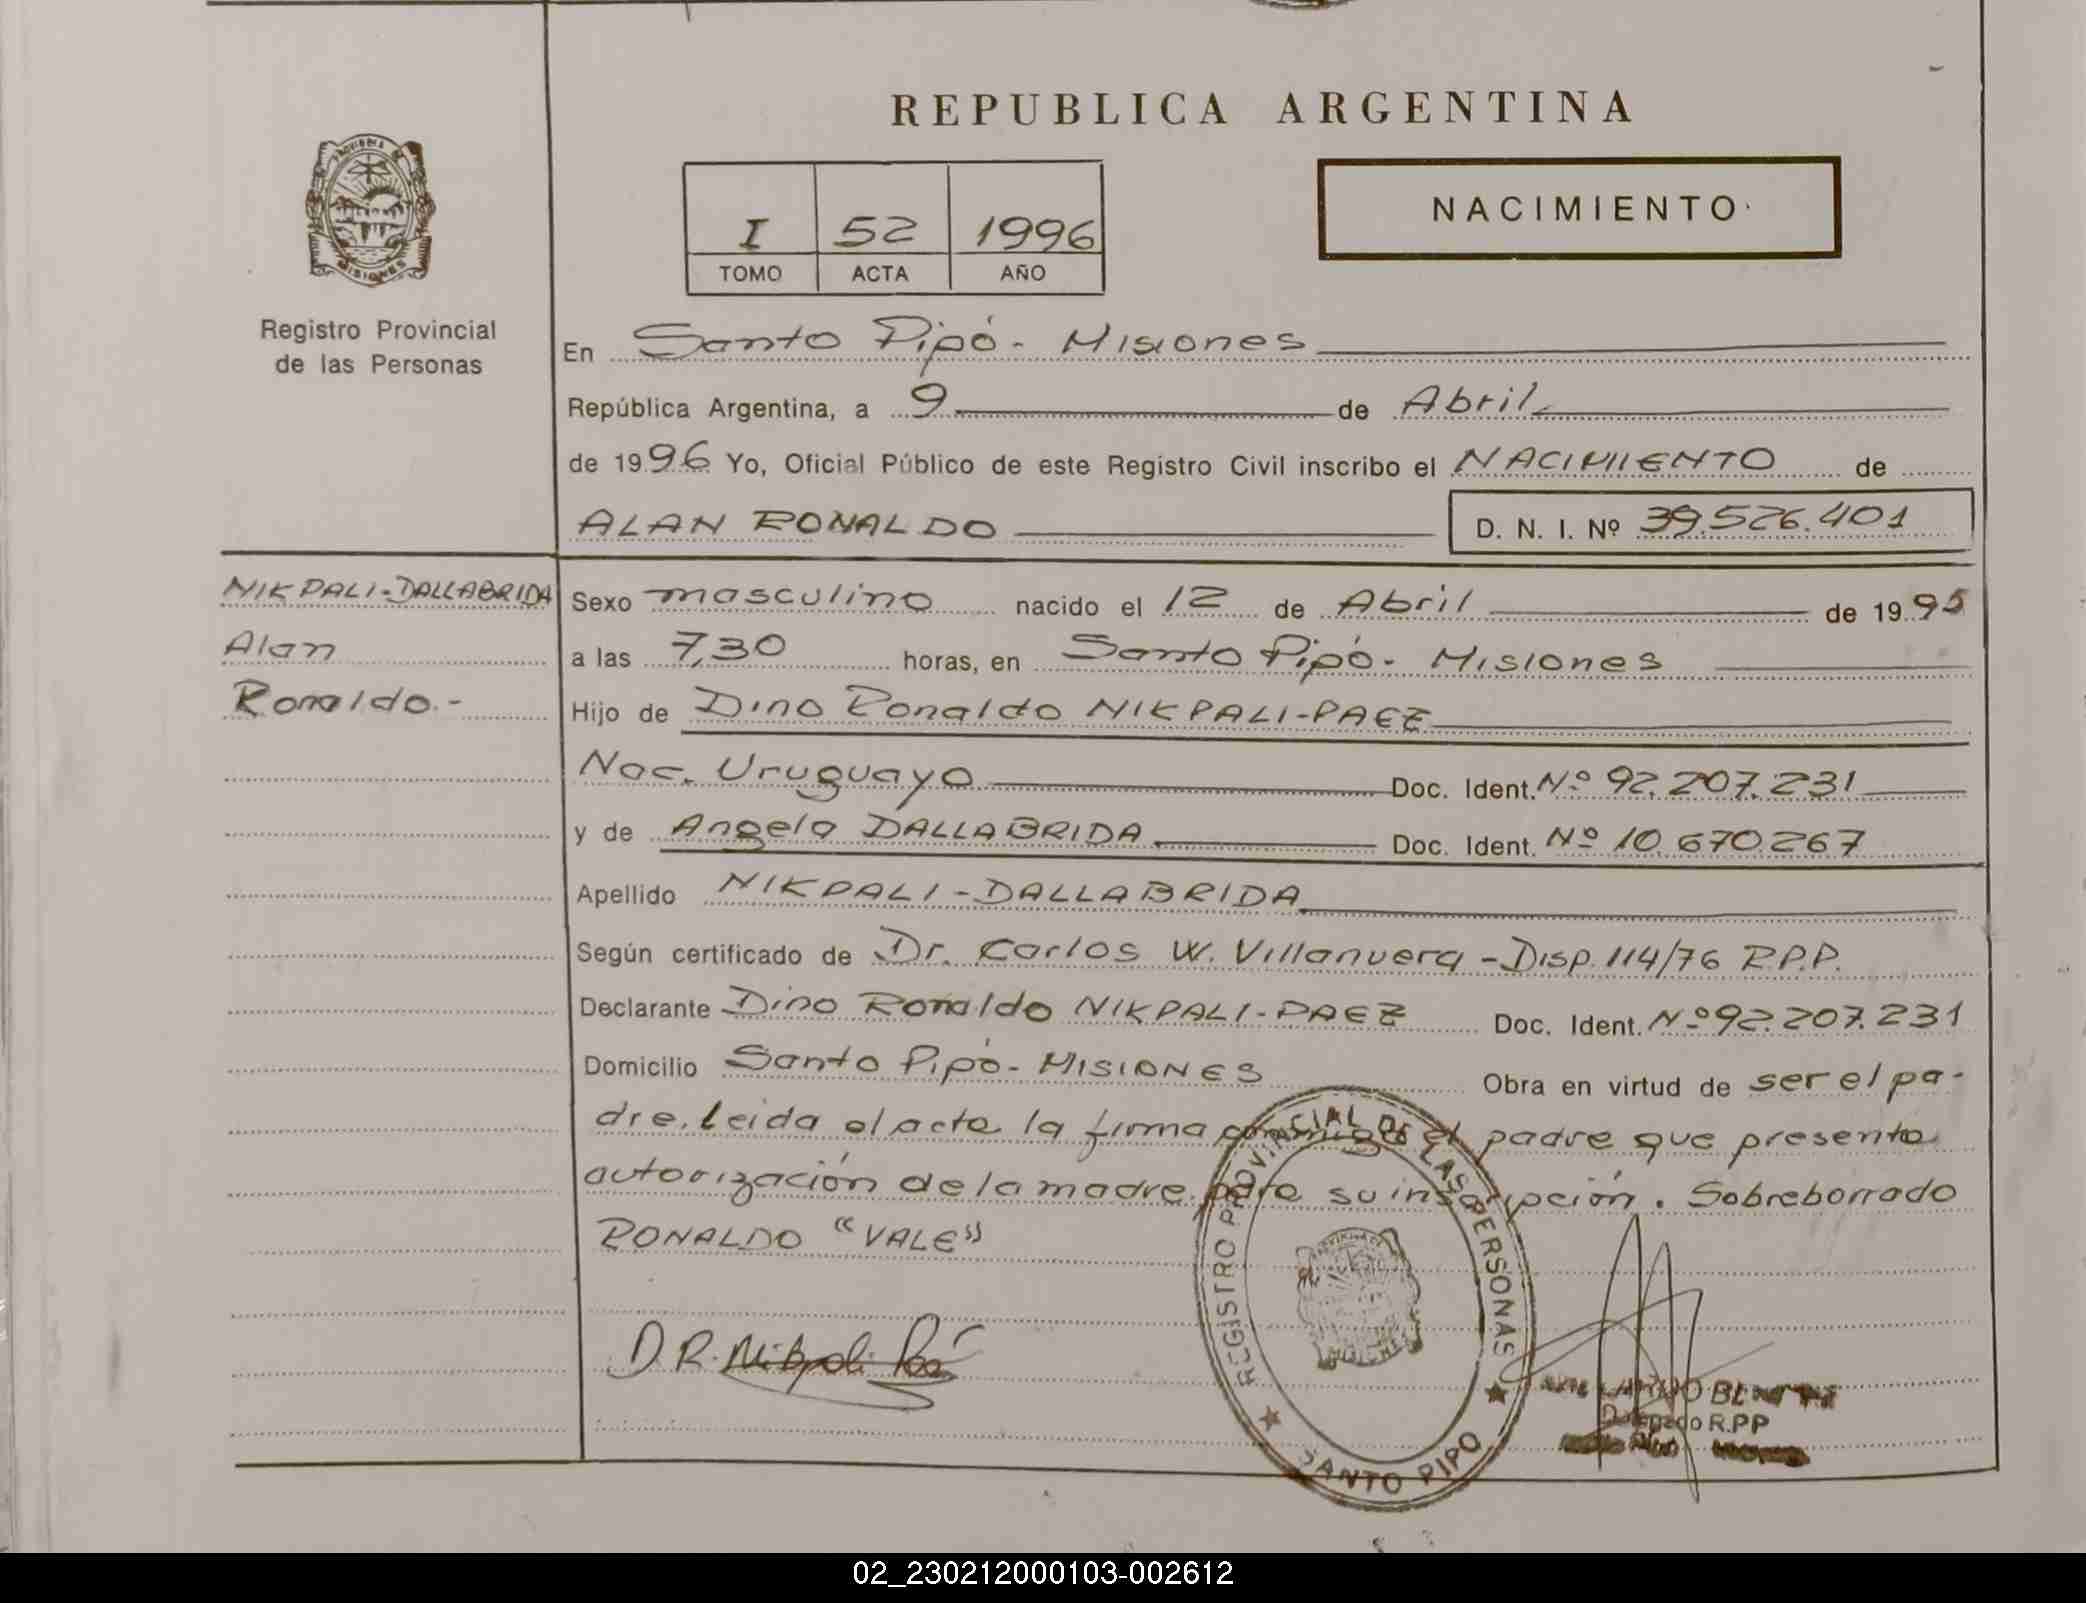 REPUBLICA ARGENTINA
NACIMIENTO
I 52 1996
TOMO ACTA AÑO
PROVINCIA DE
MISIONES
Registro Provincial
de las Personas
En Santo Pipó - Misiones
República Argentina, a 9 de Abril
de 1996 Yo, Oficial Público de este Registro Civil inscribo el NACIMIENTO de
ALAN RONALDO D. N. I. Nº 39.526.401
NIKPALI-DALLABRIDA
Alan
Ronaldo.-
Sexo masculino nacido el 12 de Abril de 1995
a las 7,30 horas, en Santo Pipó - Misiones
Hijo de Dino Ronaldo NIKPALI-PAEZ
Nac. Uruguaya Doc. Ident. Nº 92.207.231
y de Angela DALLABRIDA Doc. Ident. Nº 10.670.267
Apellido NIKPALI-DALLABRIDA
Según certificado de Dr. Carlos W. Villanuera - Disp. 114/76 R.P.P.
Declarante Dino Ronaldo NIKPALI-PAEZ Doc. Ident. Nº 92.207.231
Domicilio Santo Pipó - MISIONES Obra en virtud de ser el pa-
dre. Leida el acta la firma conmigo el padre que presenta
autorización de la madre para su inscripción. Sobreborrado
RONALDO "VALE"
D.R. Nikpali Paé
REGISTRO PROVINCIAL DE LAS PERSONAS
SANTO PIPO
Delegado R.P.P
02_230212000103-002612